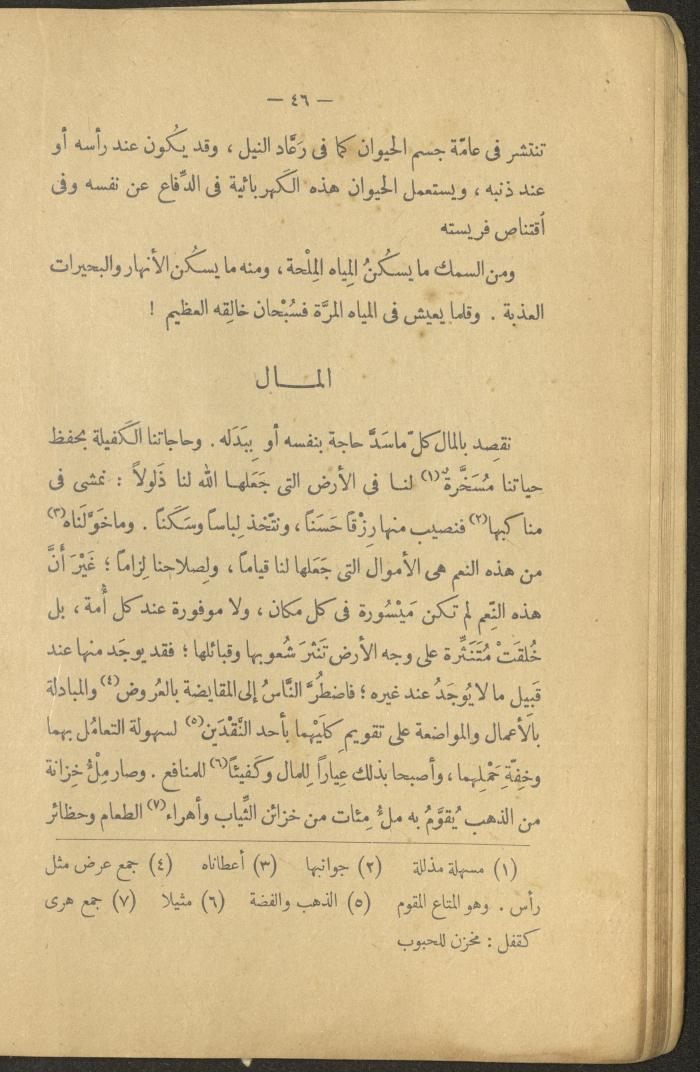 — ٤٦ —
تنتشر فى عامّة جسم الحيوان كما فى رَعَّاد النيل ، وقد يكُون عند رأسه أو
عند ذنبه ، ويستعمل الحيوان هذه الكَهربائية فى الدِّفاع عن نفسه وفى
اقتناص فريسته
ومن السمك ما يسكُنُ المِياه المِلْحة ، ومنه ما يسكُن الأنهار والبحيرات
العذبة . وقلما يعيش فى المياه المرَّة فسُبْحان خالِقه العظيم !
المـــال
نقصِد بالمال كلّ ماسَدَّ حاجة بنفسه أو بِبَدَله . وحاجاتنا الكَفيلة بحفظ
حياتنا مُسَخَّرةٌ (١) لنا فى الأرض التى جَعَلها الله لنا ذَلولاً : نمشى فى
مناكبها (٢) فنصيب منها رِزْقًا حَسَنًا ، ونتّخذ لِباسًا وسَكَنًا . وماخَوَّلَناه (٣)
من هذه النعم هى الأموال التى جَعَلها لنا قياماً ، ولِصلاحنا لِزاماً ؛ غَيْرَ أنَّ
هذه النِّعم لم تكن مَيْسُورة فى كل مكان ، ولا موفورة عند كل أُمة ، بل
خُلقَتْ مُتَنَثِّرة على وجه الأرض تَنَثُّرَ شُعوبها وقبائلها ؛ فقد يوجَد منها عند
قَبيل ما لا يُوجَدُ عند غيره ؛ فاضطُرَّ النَّاسُ إلى المقايضة بالعُروض (٤) والمبادلة
بالأعمال والمواضعة على تقويم كلَيْهما بأحد النَّقْدَين (٥) لسهولة التعامُل بهما
وخِفّةِ حَمْلِهما ، وأصبحا بذلك عِياراً لِلمال وكَفِيئًا (٦) للمنافع . وصار مِلْءُ خِزانة
من الذهب يُقوَّمُ به ملءُ مِئات من خزائن الثِّياب وأهراء (٧) الطعام وحظائر
(١) مسهلة مذللة (٢) جوانبها (٣) أعطاناه (٤) جمع عرض مثل
رأس . وهو المتاع المقوم (٥) الذهب والفضة (٦) مثيلا (٧) جمع هرى
كقفل : مخزن للحبوب